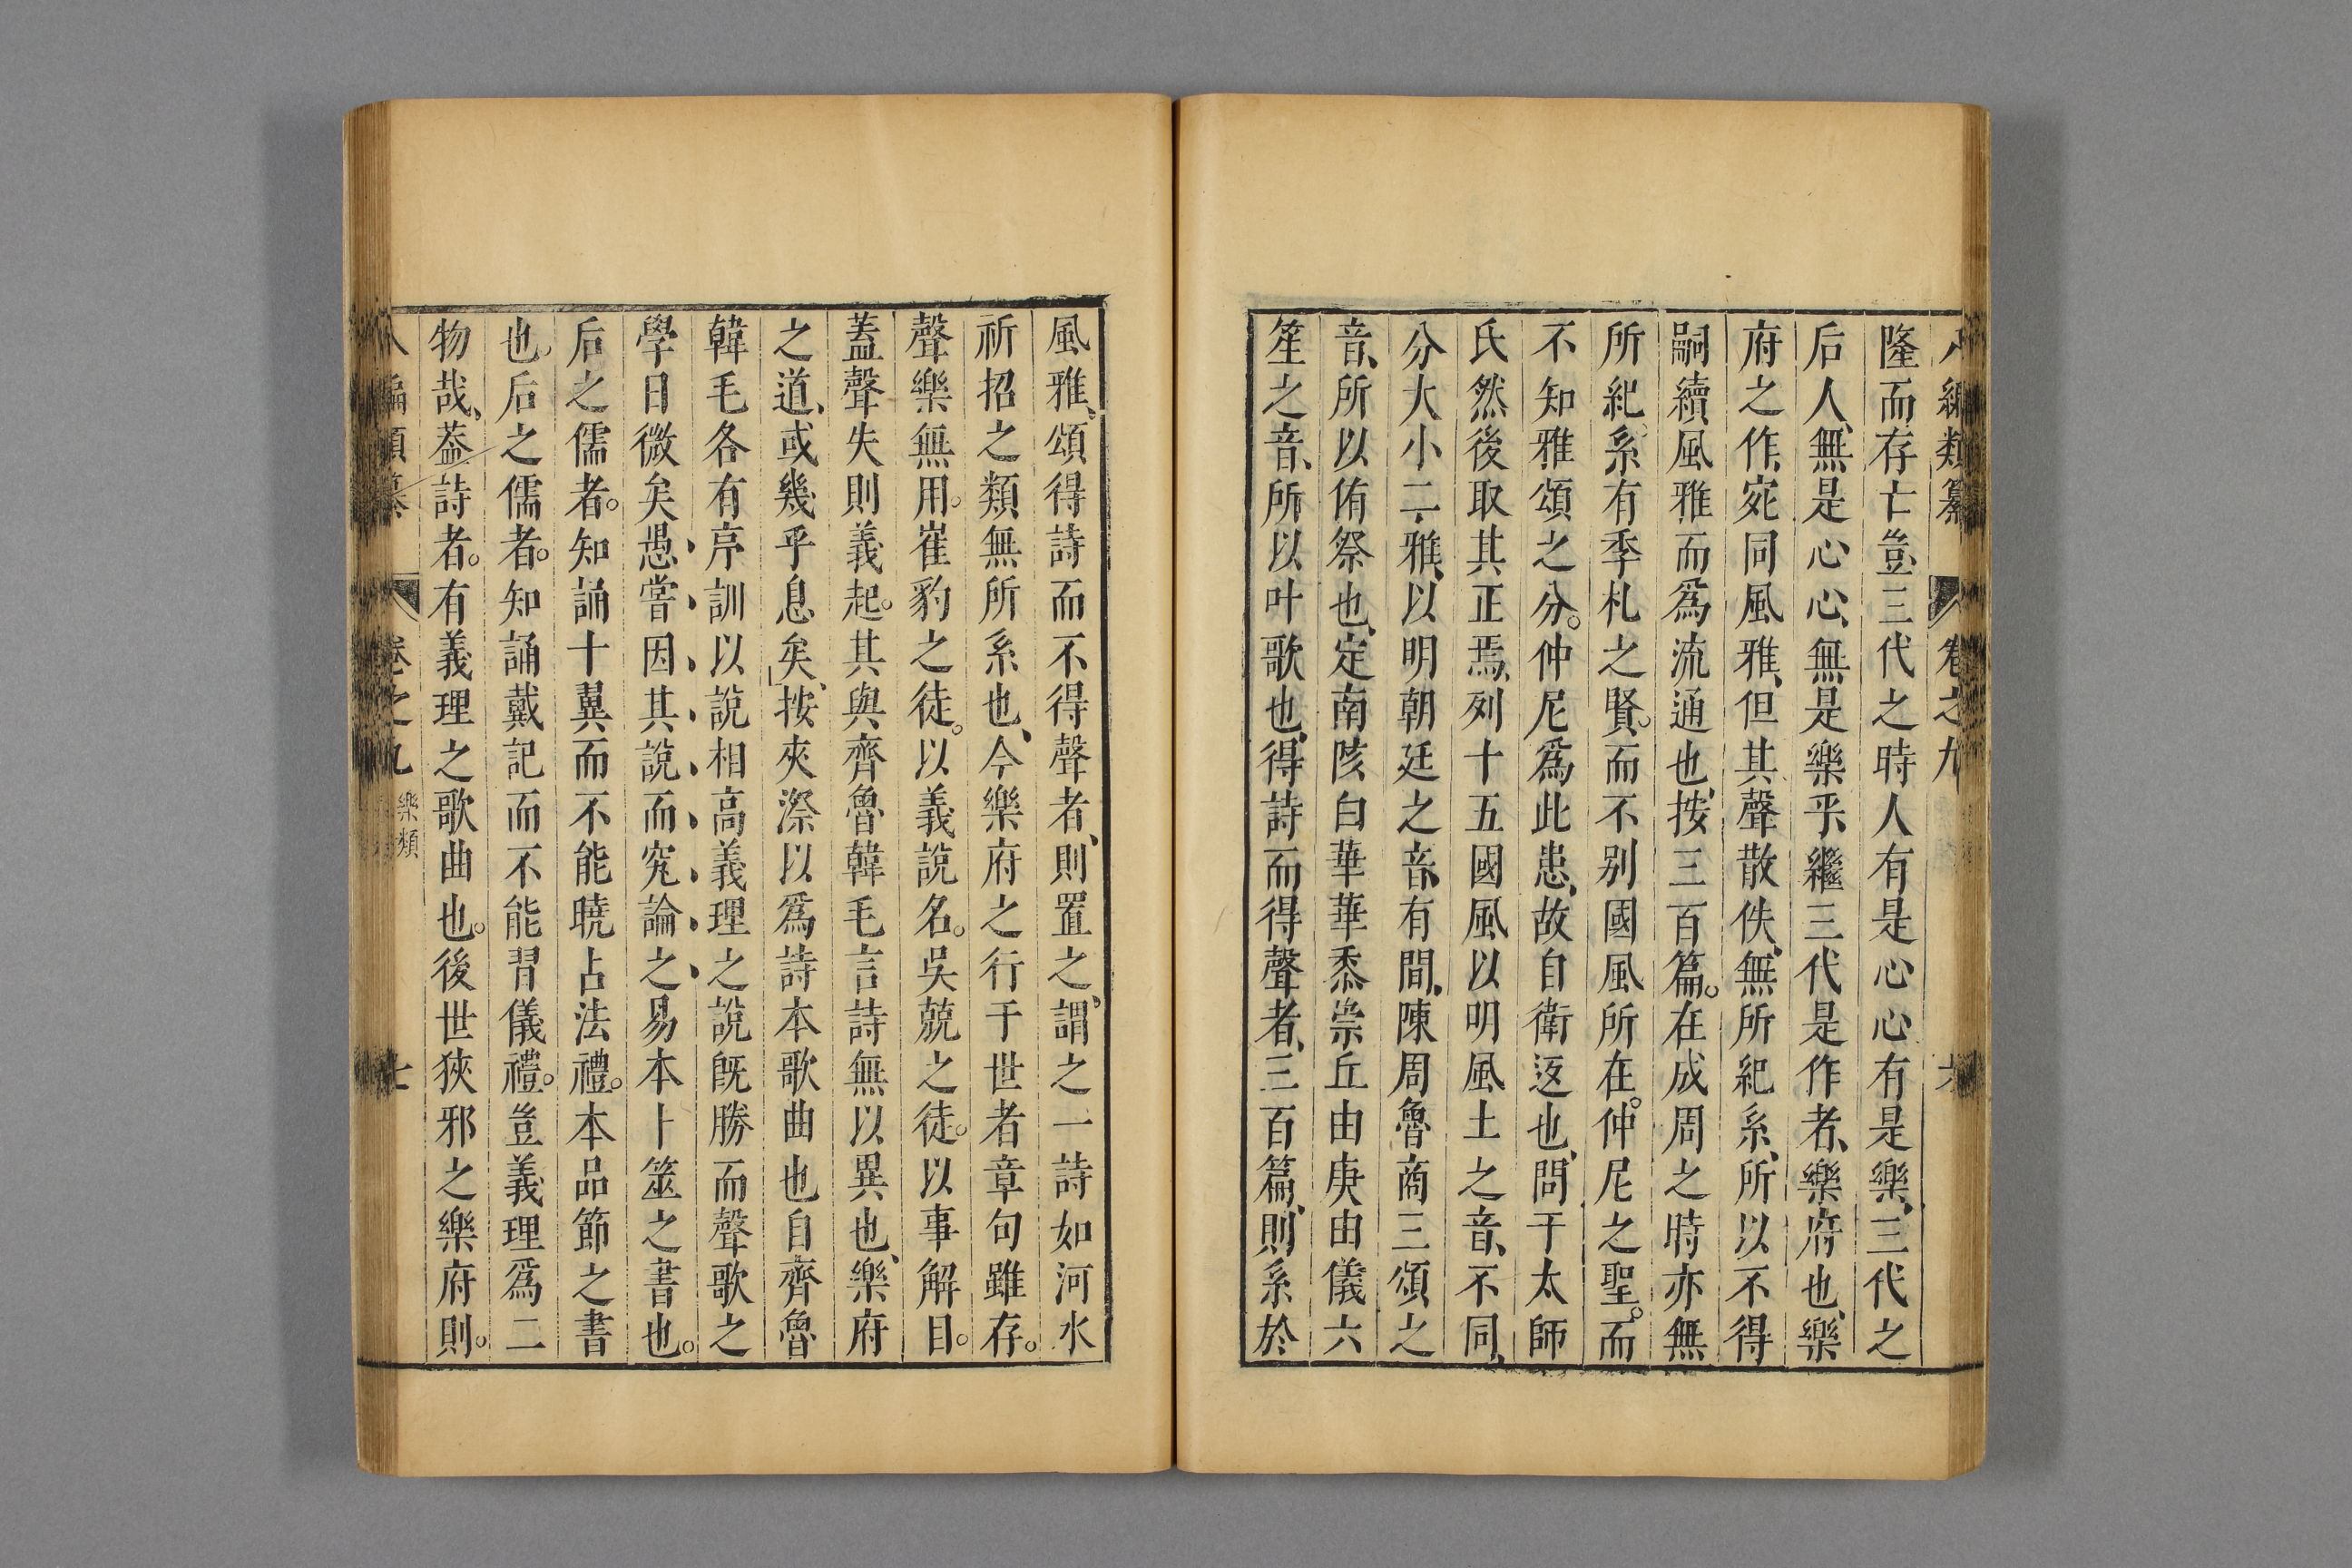 八編類纂 卷之九 六
隆而存亡豈三代之時人有是心心有是樂三代之
后人無是心心無是樂乎繼三代是作者樂府也樂
府之作宛同風雅但其聲散佚無所紀系所以不得
嗣續風雅而爲流通也按三百篇在成周之時亦無
所紀系有季札之賢而不别國風所在仲尼之聖而
不知雅頌之分仲尼爲此患故自衛返也問于太師
氏然後取其正焉列十五國風以明風土之音不同
分大小二雅以明朝廷之音有間陳周魯商三頌之
音所以侑祭也定南陔白華華黍崇丘由庚由儀六
笙之音所以叶歌也得詩而得聲者三百篇則系於
風雅頌得詩而不得聲者則置之謂之一詩如河水
祈招之類無所系也今樂府之行于世者章句雖存
聲樂無用崔豹之徒以義說名吳兢之徒以事解目
蓋聲失則義起其與齊魯韓毛言詩無以異也樂府
之道或幾乎息矣按夾漈以爲詩本歌曲也自齊魯
韓毛各有序訓以說相高義理之說旣勝而聲歌之
學日微矣愚嘗因其說而究論之易本卜筮之書也
后之儒者知誦十翼而不能曉占法禮本品節之書
也后之儒者知誦戴記而不能習儀禮豈義理爲二
物哉葢詩者有義理之歌曲也後世狹邪之樂府則
八編類纂 卷之九 樂類 七